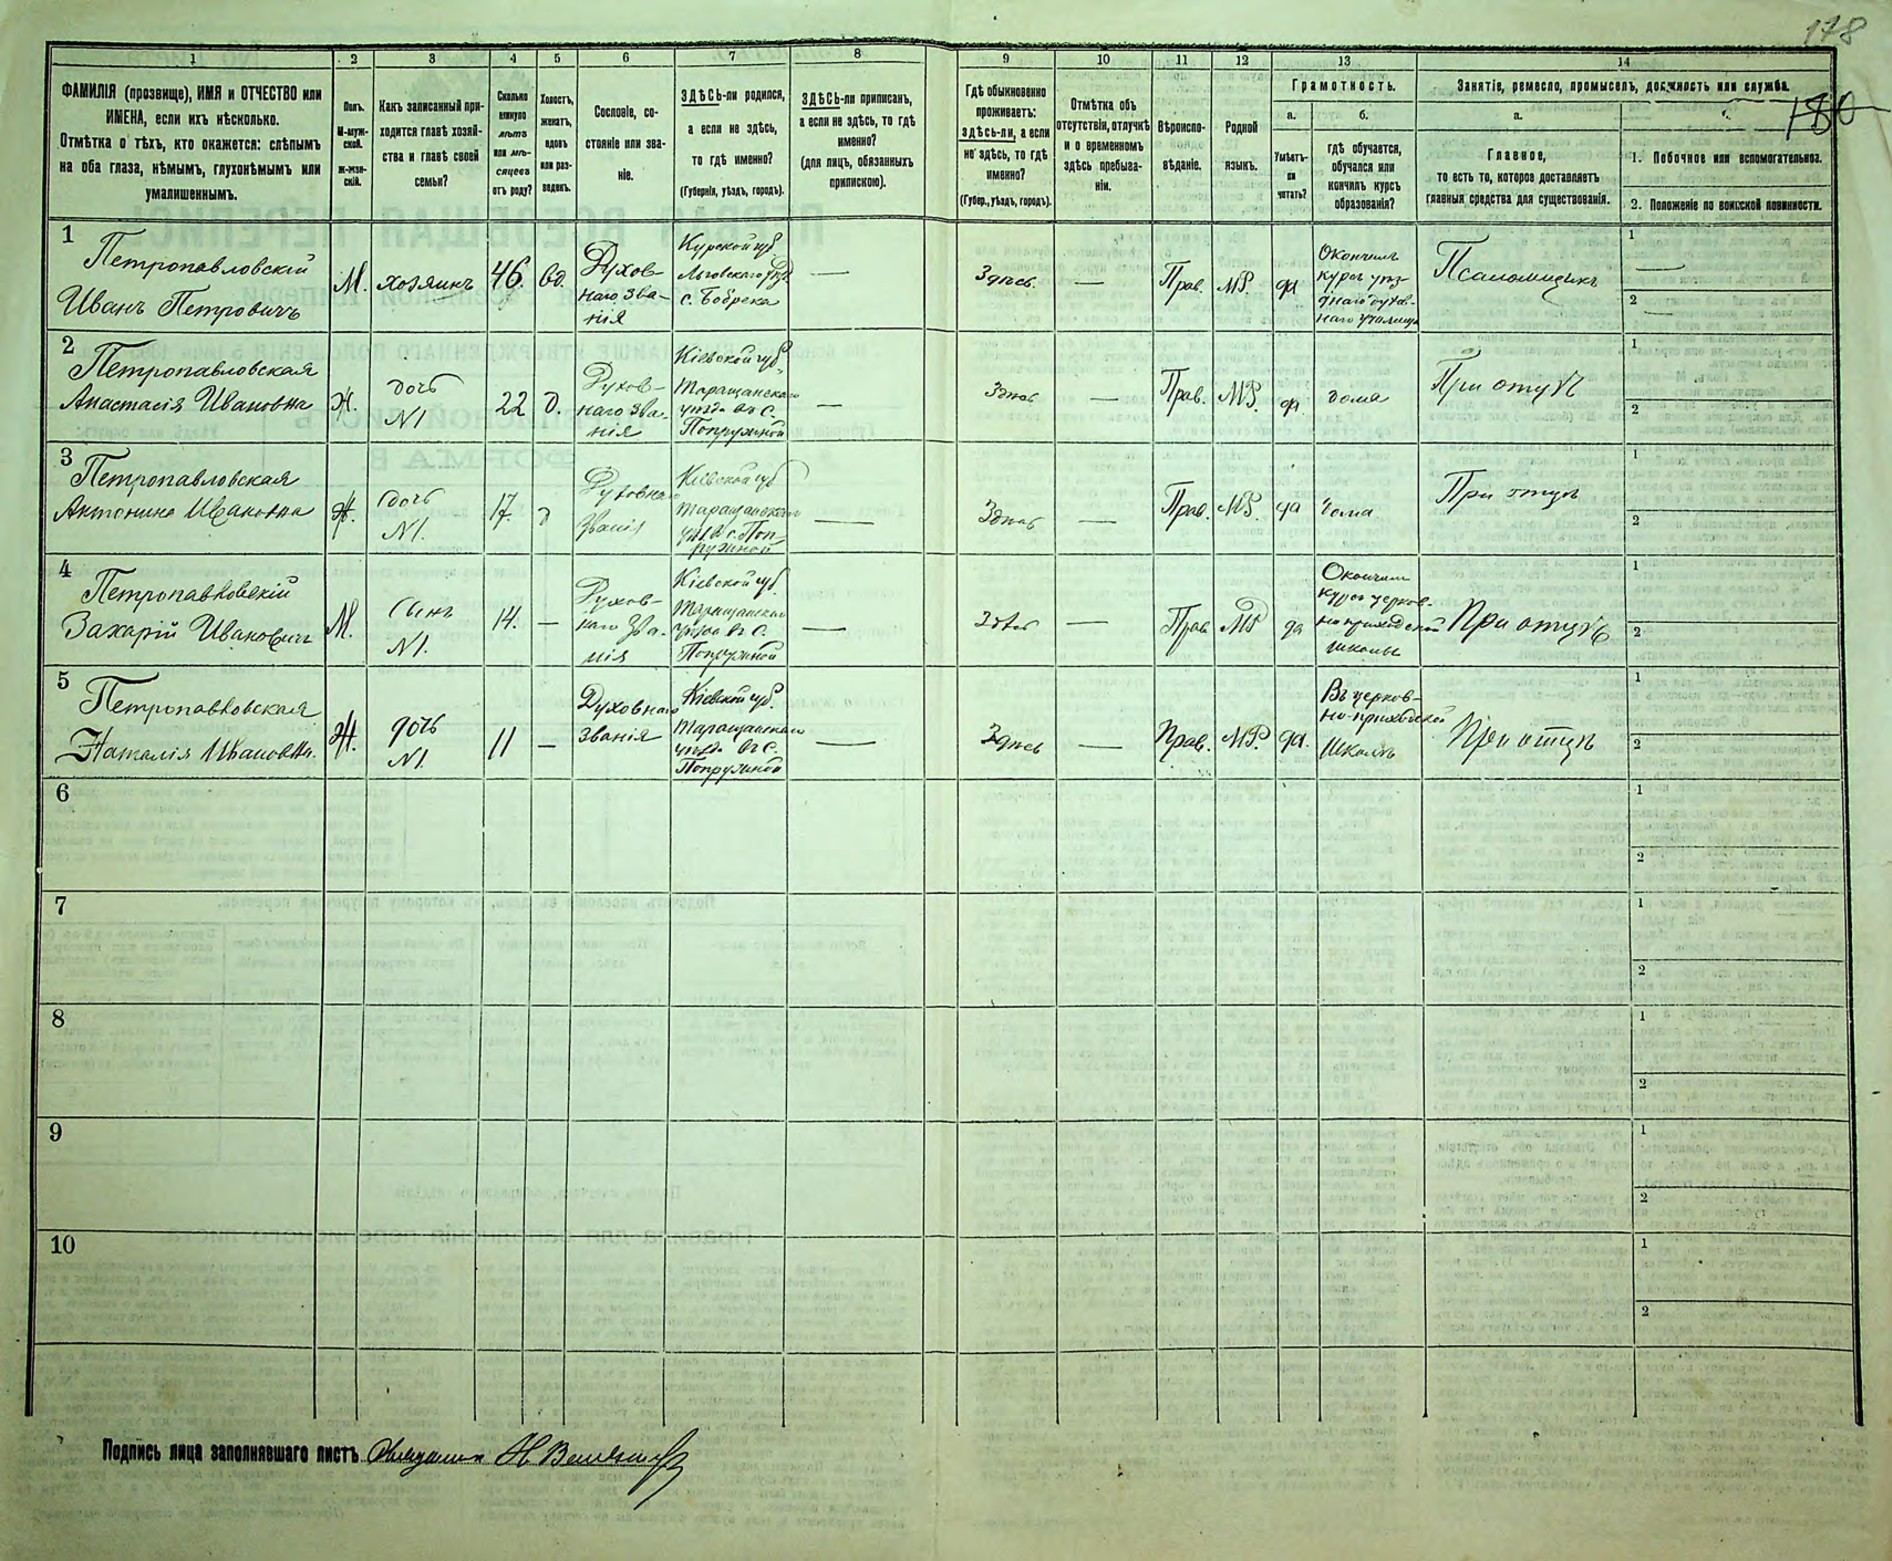 178
180
1
2
3
4
5
6
7
8
9
10
11
12
13
14
ФАМИЛІЯ (прозвище), ИМЯ и ОТЧЕСТВО или
ИМЕНА, если ихъ нѣсколько.
Отмѣтка о тѣхъ, кто окажется: слѣпымъ
на оба глаза, нѣмымъ, глухонѣмымъ или
умалишеннымъ.
Полъ.
М-муж-
ской.
ж-жен-
скій.
Какъ записанный при-
ходится главѣ хозяй-
ства и главѣ своей
семьи?
Сколько
минуло
лѣтъ
или мѣ-
сяцевъ
отъ роду?
Холостъ,
женатъ,
вдовъ
или раз-
веденъ.
Сословіе, со-
стояніе или зва-
ніе.
ЗДѢСЬ-ли родился,
а если не здѣсь,
то гдѣ именно?
(Губернія, уѣздъ, городъ).
ЗДѢСЬ-ли приписанъ,
а если не здѣсь, то гдѣ
именно?
(для лицъ, обязанныхъ
припискою).
Гдѣ обыкновенно
проживаетъ:
здѣсь-ли, а если
не здѣсь, то гдѣ
именно?
(Губер., уѣздъ, городъ).
Отмѣтка объ
отсутствіи, отлучкѣ
и о временномъ
здѣсь пребыва-
ніи.
Вѣроиспо-
вѣданіе.
Родной
языкъ.
Грамотность.
а.
Умѣетъ-
ли
читать?
б.
гдѣ обучается,
обучался или
кончилъ курсъ
образованія?
Занятіе, ремесло, промыселъ, должность или служба.
а.
Главное,
то есть то, которое доставляетъ
главныя средства для существованія.
1. Побочное или вспомогательное.
2. Положеніе по воинской повинности.
1
Петропавловскій
Иванъ Петровичъ
М.
хозяинъ
46.
вд.
Духов-
наго зва-
нія
Курской губ
Льговскаго уѣз
с. Бобрека
—
Здѣсь
—
Прав.
МР.
да
Окончилъ
курсъ уѣз-
днаго духов-
наго училища
Псаломщикъ
1
—
2
—
2
Петропавловская
Анастасія Ивановна
Ж.
дочь
N1
22
д.
Духов-
наго зва-
нія
Кіевской губ.
Таращанскаго
уѣзда въ с.
Попружной
—
Здѣсь
—
Прав.
МР.
да
дома
При отцѣ
1
2
3
Петропавловская
Антонина Ивановна
Ж.
дочь
N1.
17.
д
Духовнаго
званія
Кіевской губ
Таращанскаго
уѣз. въ с. Поп-
ружной
—
Здѣсь
—
Прав.
МР.
да
дома
При отцѣ
1
2
4
Петропавловскій
Захарій Ивановичъ
М.
Сынъ
N1.
14.
—
Духов-
наго зва-
нія
Кіевской губ.
Таращанскаго
уѣзда въ с.
Попружной
—
Здѣсь
—
Прав
МР
да
Окончилъ
курсъ церков-
но приходской
школы
При отцѣ
1
2
5
Петропавловская
Наталія Ивановна.
Ж.
дочь
N1.
11
—
Духовнаго
званія
Кіевской губ.
Таращанскаго
уѣзда въ с.
Попружной
—
Здѣсь
—
Прав.
МР.
да.
Въ церков-
но-приходской
школѣ
При отцѣ
1
2
6
1
2
7
1
2
8
1
2
9
1
2
10
1
2
Подпись лица заполнявшаго листъ